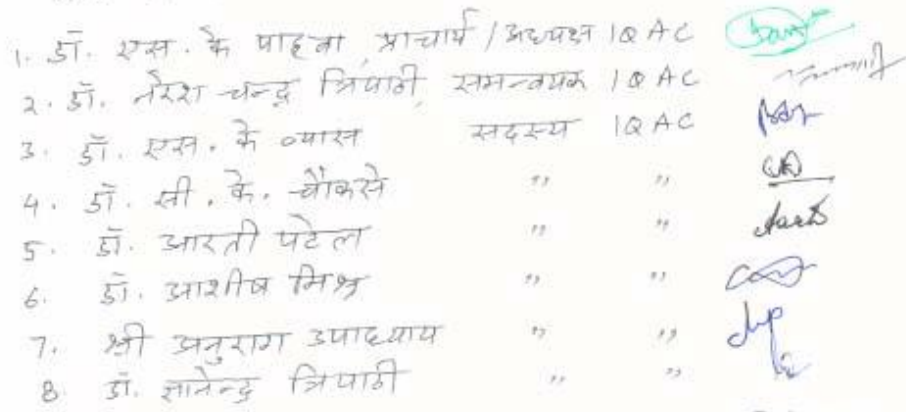 1. डॉ. एस. के पाहवा प्राचार्य / अध्यक्ष IQAC
2. डॉ. नरेश चन्द्र त्रिपाठी, समन्वयक IQAC
3. डॉ. एस. के व्यास सदस्य IQAC
4. डॉ. सी. के. चौकसे " "
5. डॉ. आरती पटेल " "
6. डॉ. आशीष मिश्र " "
7. श्री अनुराग उपाध्याय " "
8. डॉ. ज्ञानेन्द्र त्रिपाठी " "